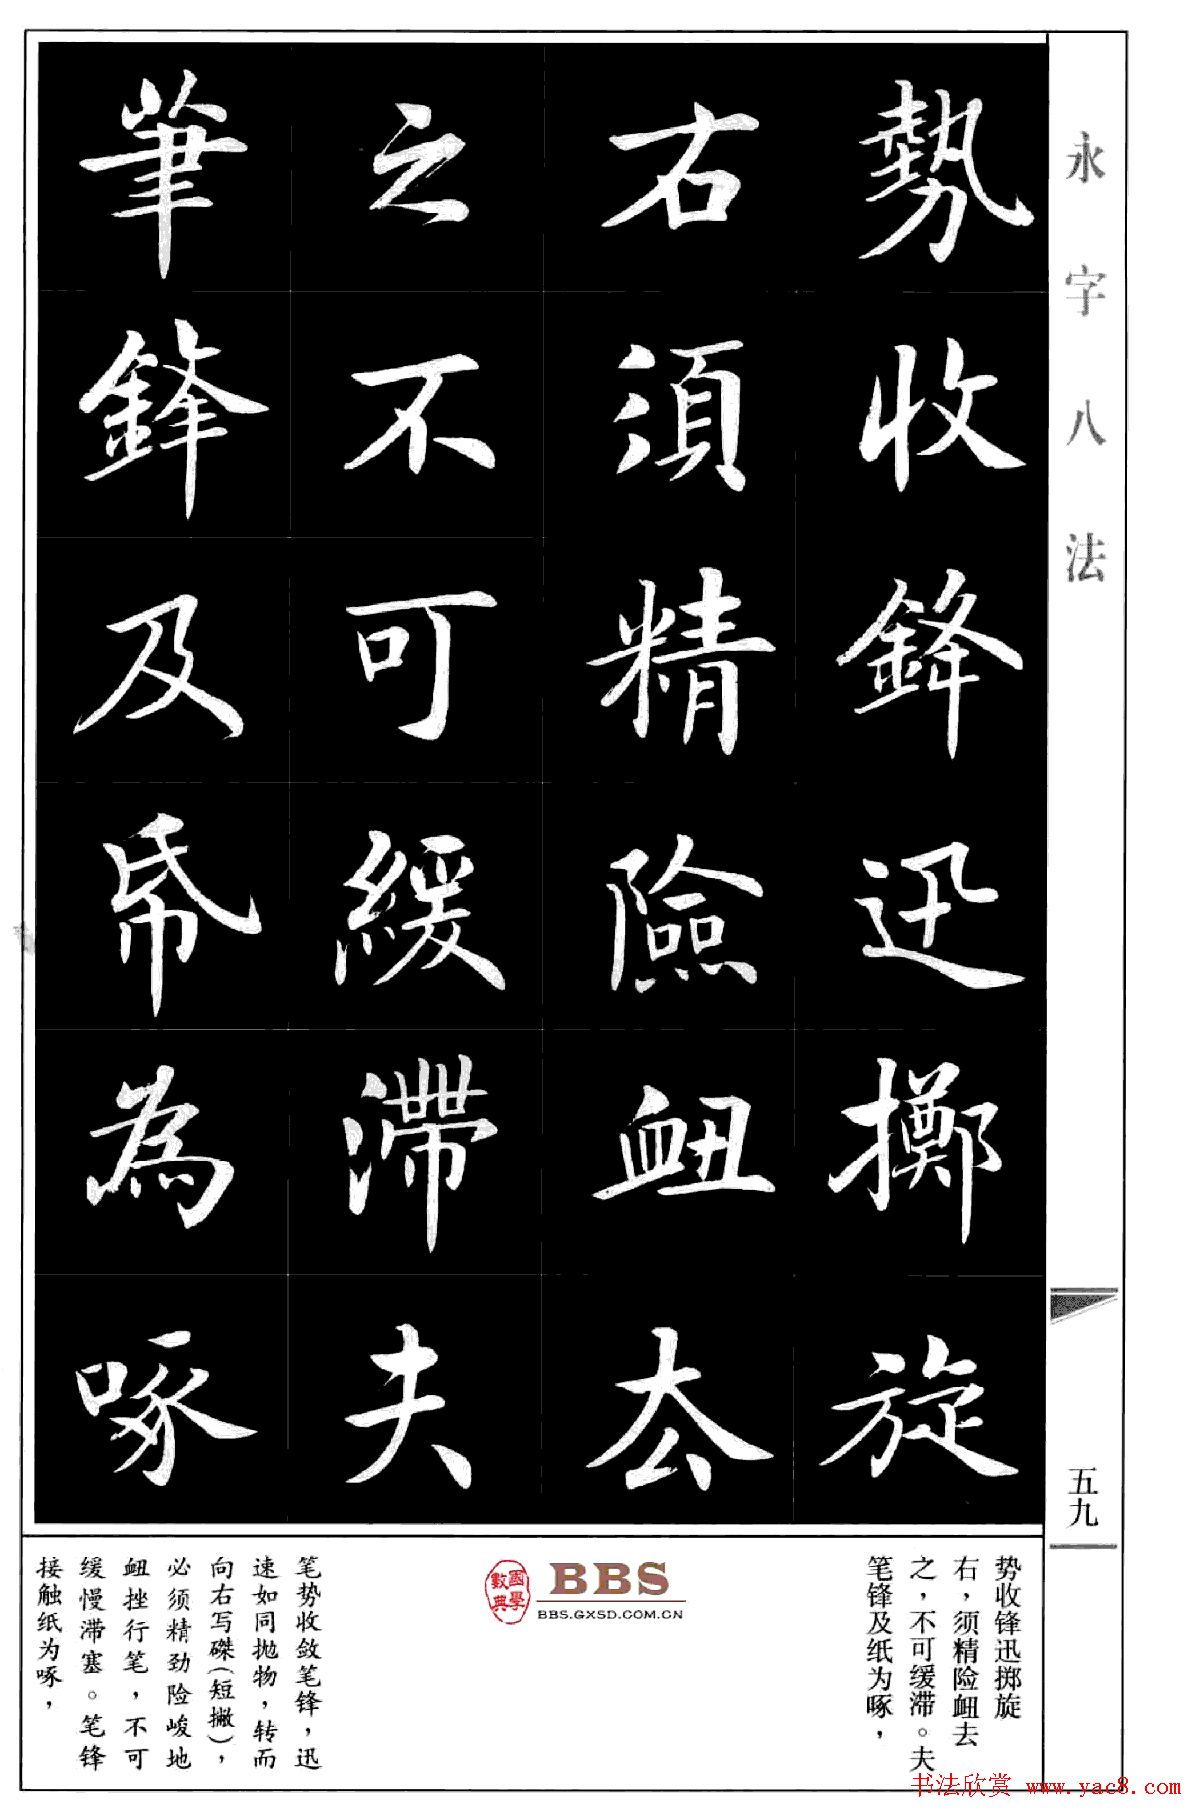 永字八法
五九
勢收鋒迅擲旋
右須精險衄去
之不可緩滯夫
筆鋒及帋為啄
势收锋迅掷旋
右，须精险衄去
之，不可缓滞。夫
笔锋及纸为啄，
國學數典
BBS
BBS.GXSD.COM.CN
笔势收敛笔锋，迅
速如同抛物，转而
向右写磔（短撇），
必须精劲险峻地
衄挫行笔，不可
缓慢滞塞。笔锋
接触纸为啄，
书法欣赏 www.yac8.com